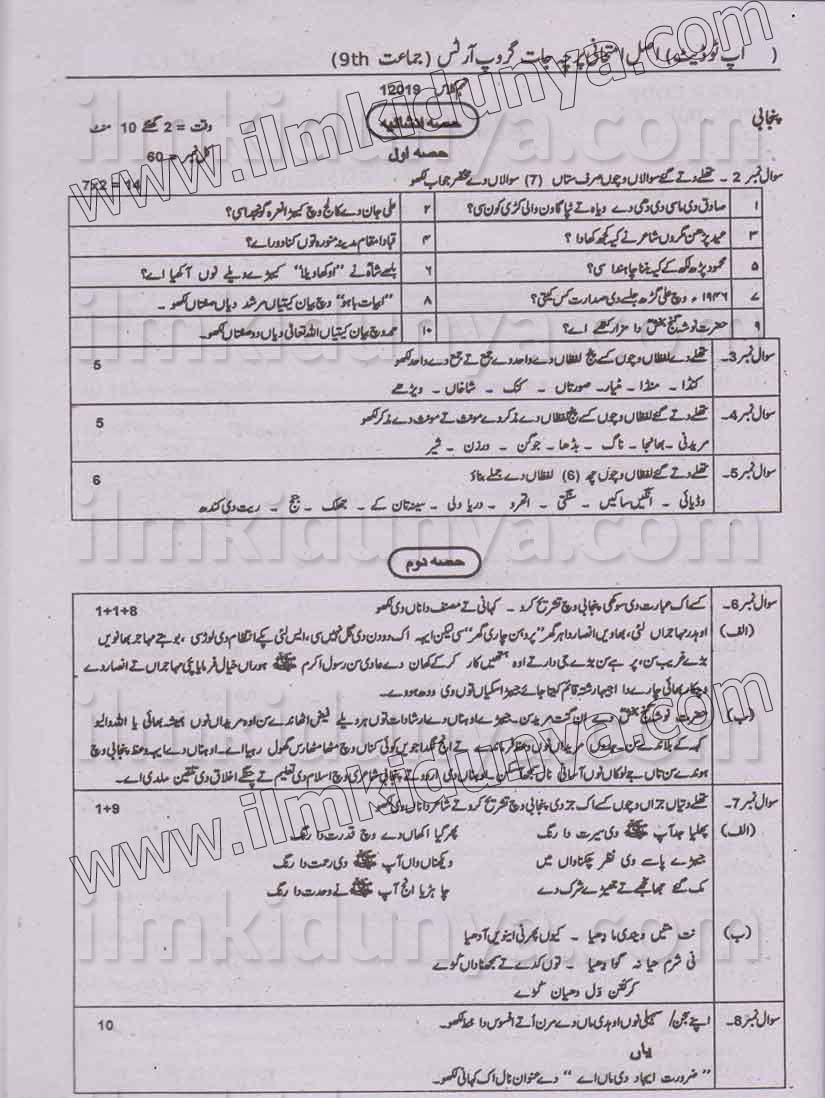 ( اپ ٹو ڈیٹڈ ) اصل امتحانی پرچہ جات گروپ آرٹس ( جماعت 9th)
12019
پنجابی
حصہ انشائیہ
وقت = 2 گھنٹے 10 منٹ
حصہ اول
کل نمبر = 60
سوال نمبر 2 ۔ تھلے دتے گئے سوالاں وچوں صرف ستاں (7) سوالاں دے مختصر جواب لکھو
7x2 = 14
۱ صادق دی ماسی دی دھی دے ویاہ تے ٹپا گاون والی کڑی کون سی؟
۲ علی جان دے کالج وچ کیہڑا نعرہ گونجدا سی؟
۳ عید پڑھن مگروں شاعر نے کیہ کجھ کھادا ؟
۴ قبا دا مقام مدینہ منورہ توں کنا دور اے؟
۵ محمود پڑھ لکھ کے کیہ بننا چاہندا سی؟
۶ بلھے شاہؒ نے "اوکھا ویلا" کیہڑے ویلے نوں آکھیا اے؟
۷ ۱۹۴۶ء وچ علی گڑھ جلسے دی صدارت کس کیتی؟
۸ "ابیات باہو" وچ بیان کیتیاں مرشد دیاں صفتاں لکھو ۔
۹ حضرت نوشہ گنج بخشؒ دا مزار کتھے اے؟
۱۰ حمد وچ بیان کیتیاں اللہ تعالیٰ دیاں دو صفتاں لکھو۔
سوال نمبر 3۔ تھلے دے لفظاں وچوں کسے پنج لفظاں دے واحد دے جمع تے جمع دے واحد لکھو
5
کنڈا ۔ منڈا ۔ ٹیار۔ صورتاں ۔ کنک ۔ شاخاں ۔ ویڑھے
سوال نمبر 4۔ تھلے دتے گئے لفظاں وچوں کسے پنج لفظاں دے مذکر دے مونث تے مونث دے مذکر لکھو
5
مریدنی ۔ بھانجا ۔ ناگ ۔ بڈھا ۔ جوگن ۔ درزن ۔ شیر
سوال نمبر 5۔ تھلے دتے گئے لفظاں وچوں چھ (6) لفظاں دے جملے بناؤ
6
وڈیائی ۔ انگیں ساکیں ۔ سنگتی ۔ اتھرو ۔ دریا دلی ۔ سینہ تان کے ۔ جھلک ۔ جج ۔ ریت دی کندھ
حصہ دوم
سوال نمبر 6۔ کسے اک عبارت دی سوکھی پنجابی وچ تشریح کرو ۔ کہانی تے مصنف دا ناں وی لکھو
1+1+8
(الف) اوہدر مہاجراں لئی، بھاویں انصار دا ہر گھر "پروہن چاری گھر" سی لیکن ایہہ اک دو دن دی گل نہیں سی، ایس لئی پکے انتظام دی لوڑ سی، بوہتے مہاجر بھانویں
بڑے غریب سن، پر ہے سن بڑے جی دار تے اوہ ہتھیں کار کر کے کھان دے عادی سن رسول اکرم ﷺ ہوراں خیال فرمایا پئی مہاجراں تے انصار دے
وچکار بھائی چارے دا اجیہا رشتہ قائم کیتا جائے جیہڑا سکیاں توں وی ودھ ہووے۔
(ب) حضرت نوشہ گنج بخشؒ دے ان گنت مرید سن۔ جیہڑے اوہناں دے ارشادات توں ہر ویلے فیض اٹھاندے سن اوہ مریداں نوں ہمیشہ بھائی یا اللہ والیو
کہہ کے بلاندے سن۔ جدوں مریداں نوں وعظ فرماندے تے انج لگدا جویں کوئی کناں وچ مٹھا مٹھا رس گھول رہیا اے۔ اوہناں دے ایہہ وعظ پنجابی وچ
ہوندے سن تاں جے لوکاں نوں آسانی نال سمجھ آسکن۔ اوہناں دی اردو تے پنجابی شاعری وچ اسلام دی تعلیم تے چنگے اخلاق دی تلقین ملدی اے۔
سوال نمبر 7۔ تھلے دتیاں جزاں وچوں کسے اک جز دی پنجابی وچ تشریح کرو تے شاعر دا ناں وی لکھو
1+9
(الف) پھلیا جد آپ ﷺ دی سیرت دا رنگ پھر گیا اکھاں دے وچ قدرت دا رنگ
جیہڑے پاسے وی نظر چکناواں میں ویکھناں واں آپ ﷺ دی رحمت دا رنگ
مک گئے جھانجھے تے جھیڑے شرک دے چاہڑیا انج آپ ﷺ نے وحدت دا رنگ
(ب) نت متیں دیندی ماؤ دھیا ۔ کیوں پھرنی اینویں آ دھیا
نی شرم حیا نہ گوا دھیا ۔ توں کدے تے سمجھ ناداں کڑے
کر کتن ول دھیان کڑے
سوال نمبر 8۔ اپنے سجن / سہیلی نوں اوہدی ماں دے مرن اتے افسوس دا خط لکھو۔
10
یاں
" ضرورت ایجاد دی ماں اے " دے عنوان نال اک کہانی لکھو۔
www.ilmkidunya.com
ilmkidunya.com